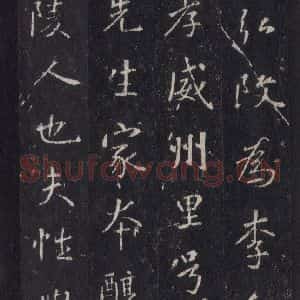 弘為李
孝威州里号
先生家本
陵人也夫性
Shufawang.CN